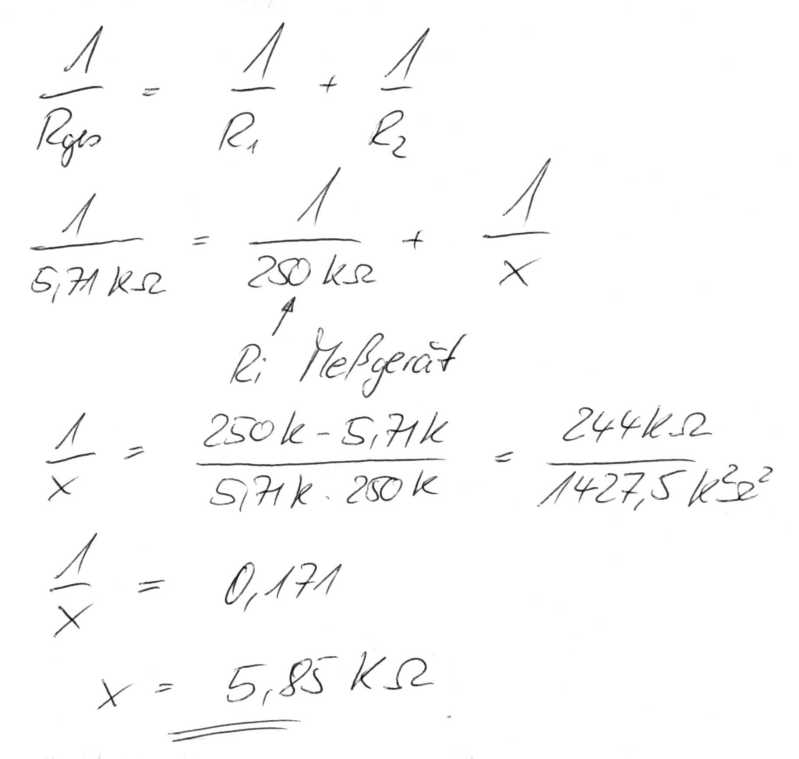 1/Rges = 1/R1 + 1/R2
1/5,71 kΩ = 1/250 kΩ + 1/x
Ri Meßgerät
1/x = 250k - 5,71k / 5,71k · 250k = 244kΩ / 1427,5 k²Ω²
1/x = 0,171
x = 5,85 kΩ